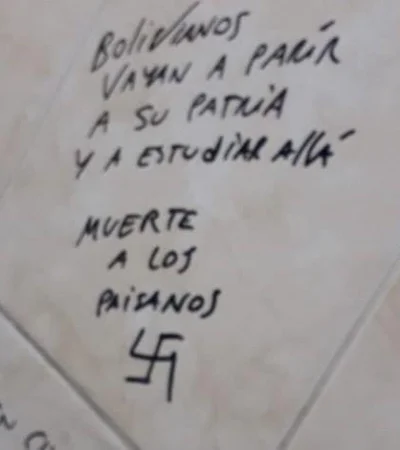 BOLIVIANOS
VAYAN A PARÍR
A SU PATRIA
Y A ESTUDIAR ALLÁ
MUERTE
A LOS
PAISANOS